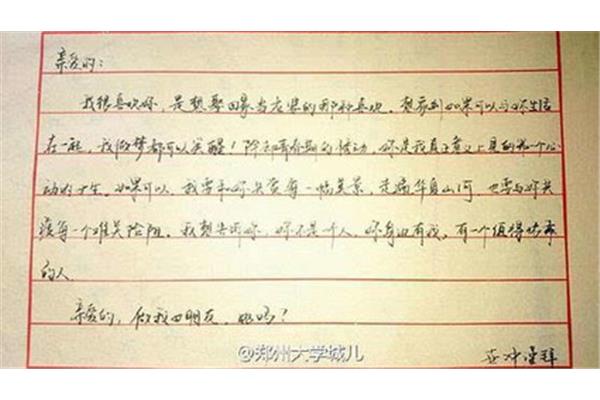 亲爱的：
我很喜欢你，是想娶回家当老婆的那种喜欢。想要到如果可以与你生活
在一起，我做梦都可以笑醒！除却青春期的悸动，你是我真正意义上见的第一个心
动的女生。如果可以，我要和你共赏每一幅美景，走遍华夏山河，也要与你共
渡每一个难关险阻。我想告诉你，你不是一个人，你身边有我，有一个值得你
的人
亲爱的，做我女朋友，好吗？
@郑州大学城儿